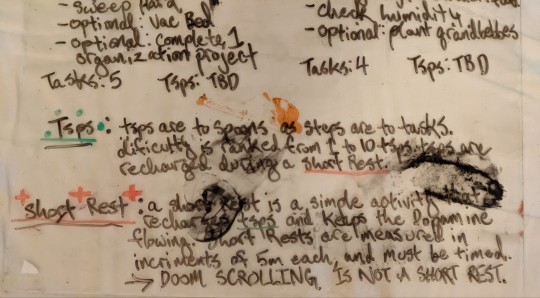 - sweep
- optional: Vac Bed
- optional: complete 1
organization project
Tasks: 5 Tsps: TBD
- check humidity
- optional: plant grandbebbes
Tasks: 4 Tsps: TBD
Tsps: tsps are to spoons as steps are to tasks.
dificulty is ranked from 1 to 10 tsps. tsps are
recharged during a short Rest.
short Rest: a short rest is a simple activity that
recharges tsps and keeps the Dopamine
flowing. Short Rests are measured in
incriments of 5m each, and must be timed.
→ DOOM SCROLLING IS NOT A SHORT REST.